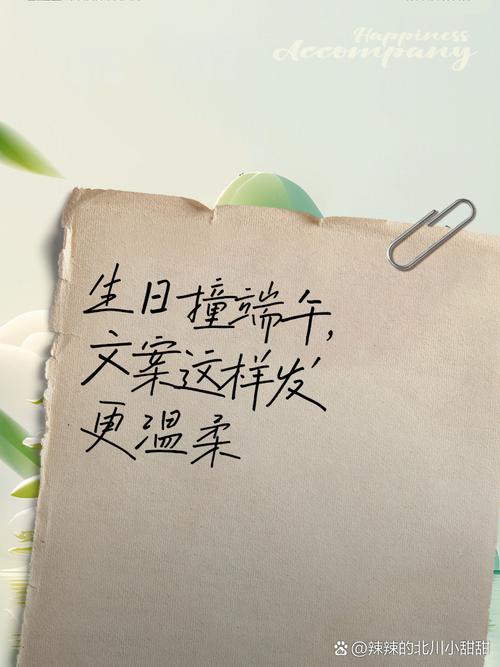 Happiness
Accompany
生日撞端午,
文案这样发
更温柔
@辣辣的北川小甜甜